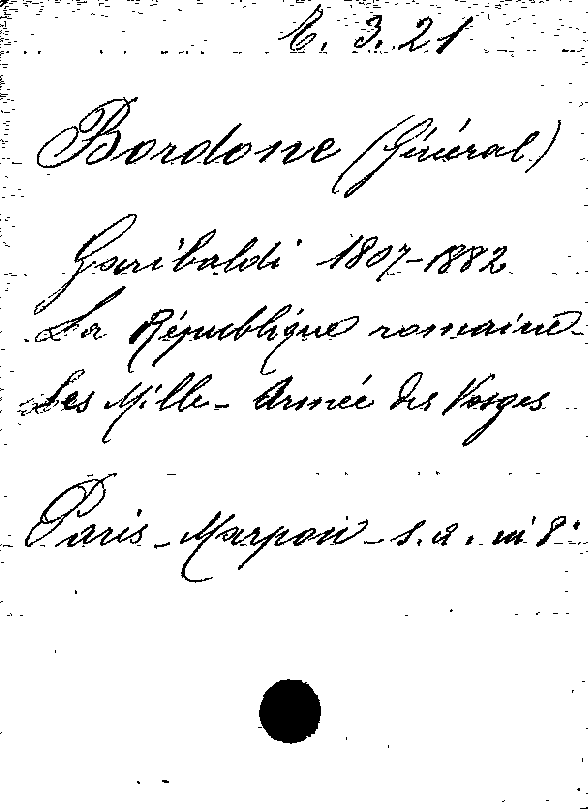 E. 3. 21
Bordone (Général)
Garibaldi 1807-1882
La République romaine-
Les Mille- Armée des Vosges
Paris - Marpon - s.a. in 8°